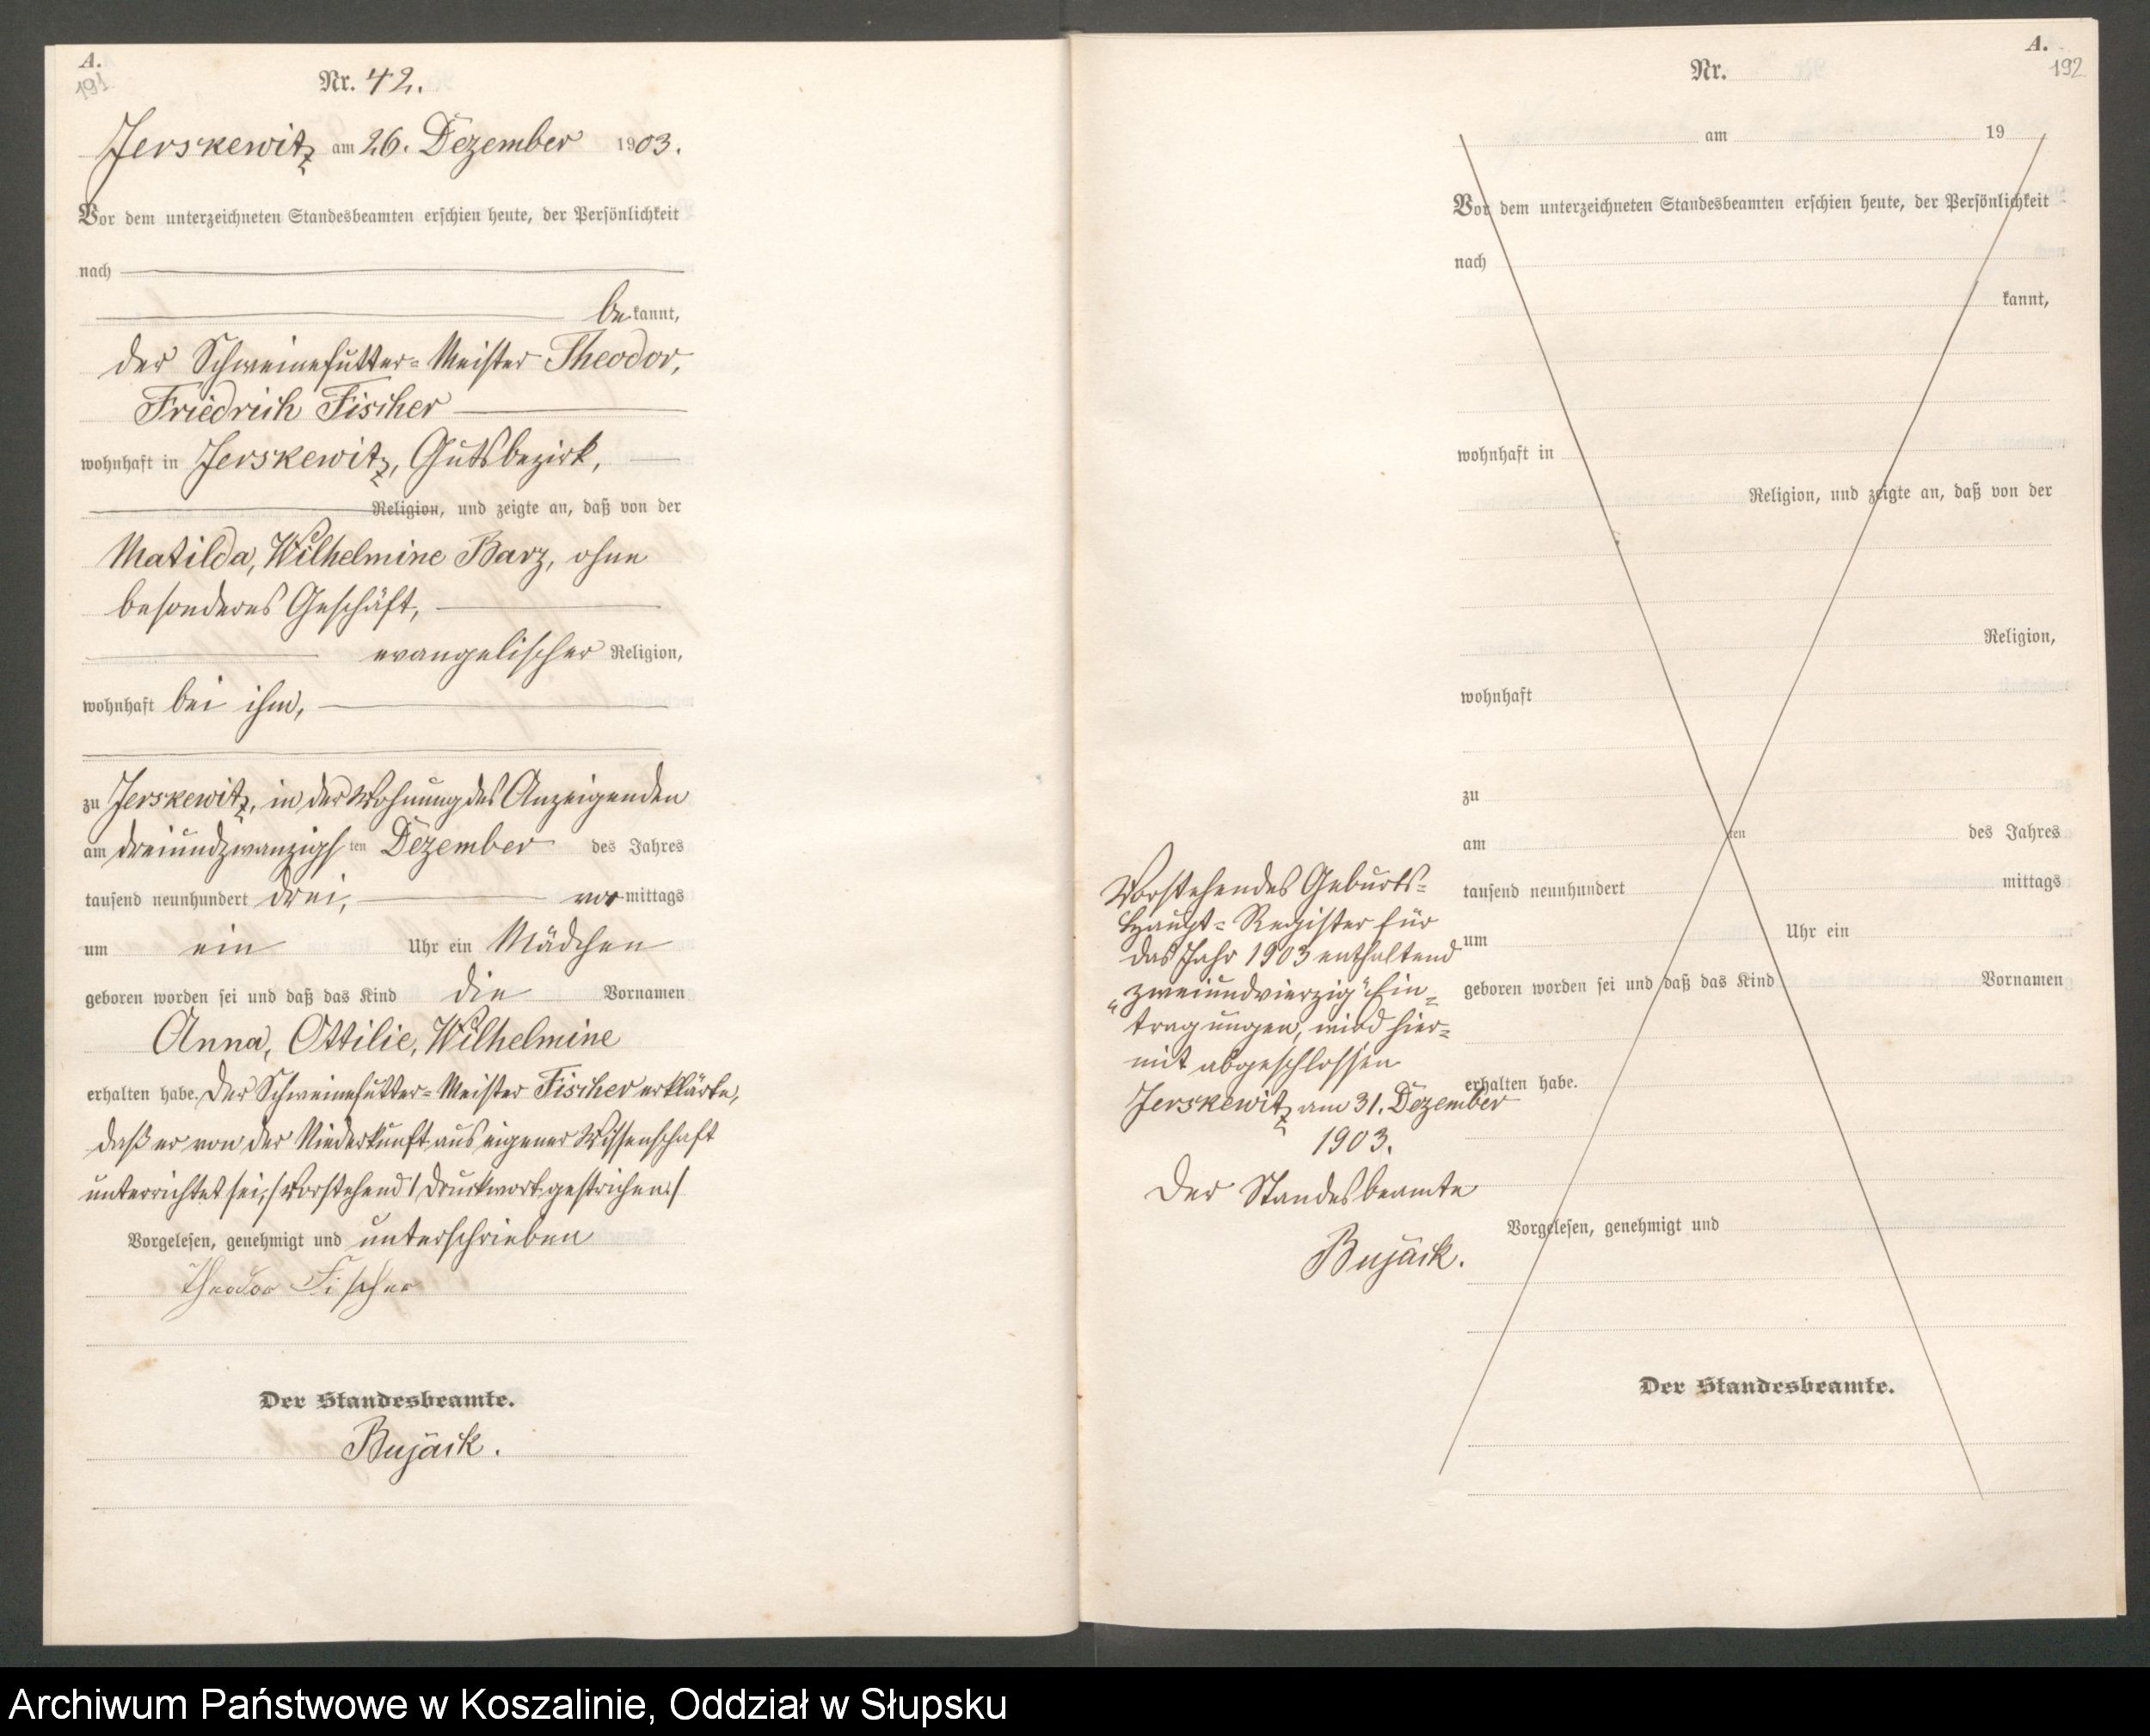 A.
191
Nr. 42.
Jerskewitz am 26. Dezember 1903.
Vor dem unterzeichneten Standesbeamten erschien heute, der Persönlichkeit
nach
be kannt,
der Schweinefutter-Meister Theodor,
Friedrich Fischer
wohnhaft in Jerskewitz, Gutsbezirk,
Religion, und zeigte an, daß von der
Matilda, Wilhelmine Barz, ohne
besonderes Geschäft,
evangelischer Religion,
wohnhaft bei ihm,
zu Jerskewitz, in der Wohnung des Anzeigenden
am dreiundzwanzigs ten Dezember des Jahres
tausend neunhundert drei, vor mittags
um ein Uhr ein Mädchen
geboren worden sei und daß das Kind die Vornamen
Anna, Ottilie, Wilhelmine
erhalten habe. Der Schweinefutter-Meister Fischer erklärte,
daß er von der Niederkunft aus eigener Wissenschaft
unterrichtet sei, /Vorstehend 1 Druckwort gestrichen./
Vorgelesen, genehmigt und unterschrieben
Theodor Fischer
Der Standesbeamte.
Bujäck.
A.
192
Nr.
am 19
Vor dem unterzeichneten Standesbeamten erschien heute, der Persönlichkeit
nach
kannt,
wohnhaft in
Religion, und zeigte an, daß von der
Religion,
wohnhaft
zu
am ten des Jahres
tausend neunhundert mittags
um Uhr ein
geboren worden sei und daß das Kind Vornamen
erhalten habe.
Vorgelesen, genehmigt und
Der Standesbeamte.
Vorstehendes Geburts-
Haupt-Register für
das Jahr 1903 enthaltend
"zweiundvierzig" Ein-
tragungen, wird hier-
mit abgeschlossen
Jerskewitz am 31. Dezember
1903.
Der Standesbeamte
Bujäck.
Archiwum Państwowe w Koszalinie, Oddział w Słupsku